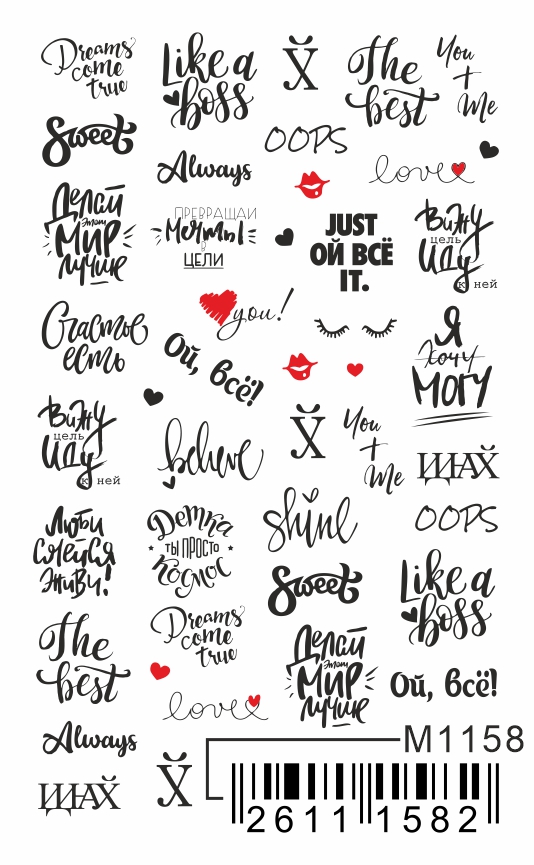 Dreams
come
true
Like a
boss
Х̆
The
best
You
+
Me
Sweet
Always
OOPS
love
Делай
этот
Мир
лучше
ПРЕВРАЩАЙ
Мечты
в
ЦЕЛИ
JUST
ОЙ ВСЁ
IT.
Вижу
цель
Иду
к ней
you!
Счастье
есть
Ой, всё!
Я
Хочу
МОГУ
Вижу
цель
Иду
к ней
believe
Х̆
You
+
Me
ЩАЙ
Люби
Смейся
Живи!
Детка
ТЫ ПРОСТО
Космос
shine
OOPS
Sweet
Like a
boss
The
best
Dreams
come
true
love
Делай
этот
Мир
лучше
Ой, всё!
Always
Х̆
M1158
26111582